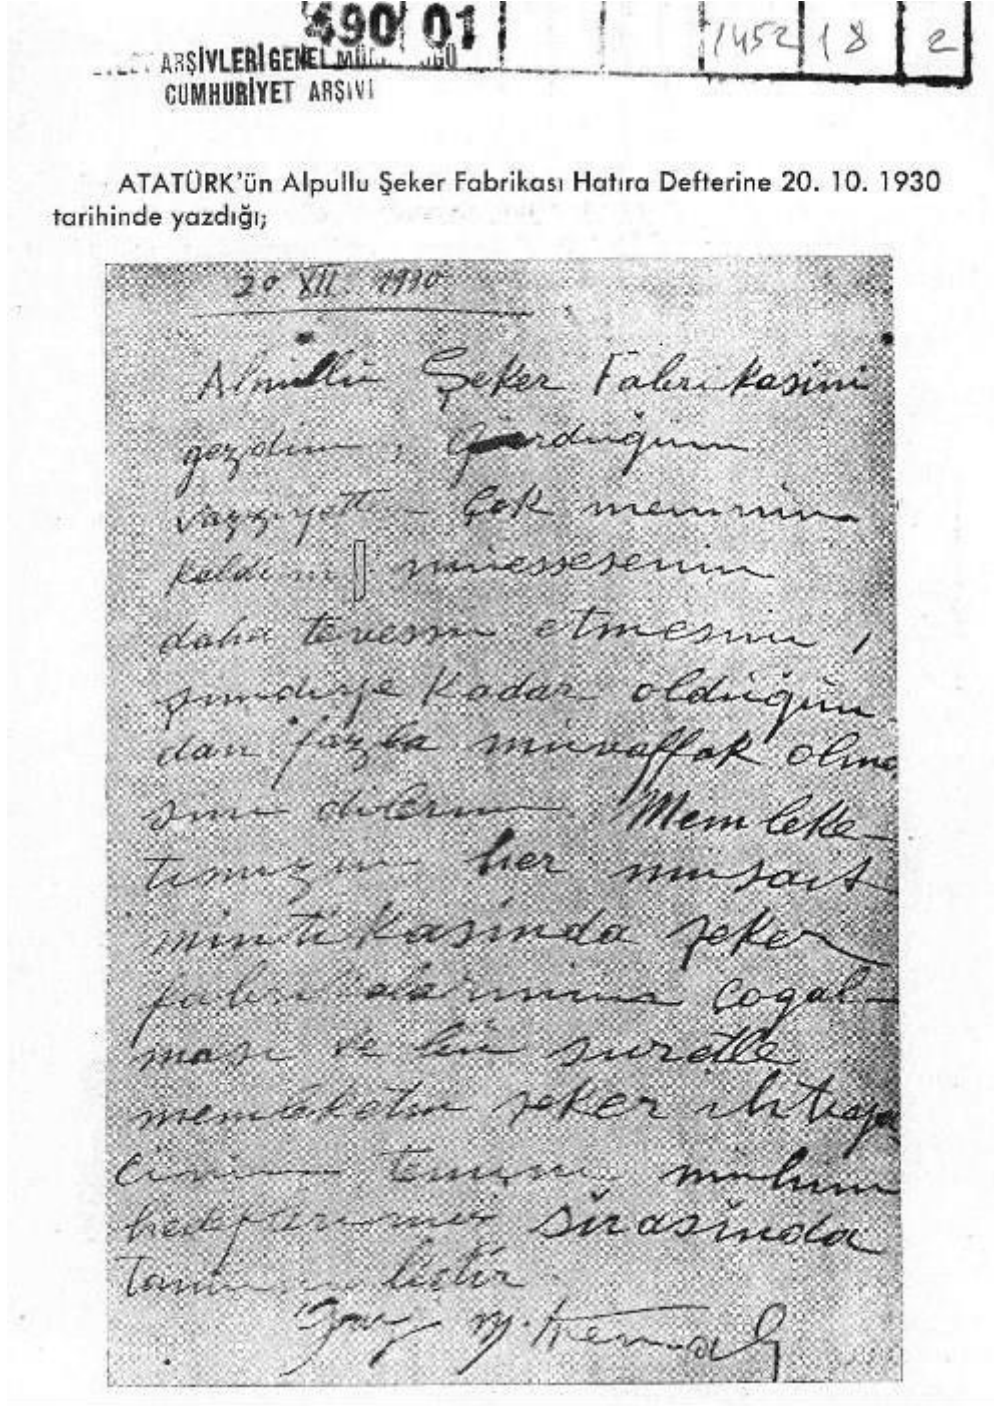 490 01
1452 18 2
ARŞİVLERİ GENEL
CUMHURİYET ARŞİVİ
ATATÜRK'ün Alpullu Şeker Fabrikası Hatıra Defterine 20. 10. 1930
tarihinde yazdığı;
20 XII. 1930
Alpullu Şeker Fabrikasini
gezdim, Gördüğüm
vazziyetten Çok memnun
kaldim müessesenin
daha tevessu etmesini,
şimdiye kadar olduğun
dan fazla muvaffak olma
sını dilerim Memleke-
timizin her müsait
mintikasinda şeker
fabrikalarinin çogal-
masi ve bu suretle
memleketin şeker ihtiya
cinin temini mühim
hedeflerimiz sirasinda
lidir
Gazi M. Kemal